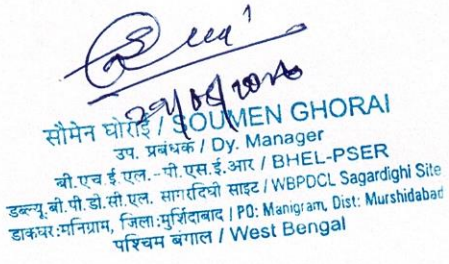 सौमेन घोराई / SOUMEN GHORAI
उप. प्रबंधक / Dy. Manager
बी.एच.ई.एल.-पी.एस.ई.आर / BHEL-PSER
डब्ल्यू.बी.पी.डी.सी.एल. सागरदिघी साइट / WBPDCL Sagardighi Site
डाकघर:मनिग्राम, जिला:मुर्शिदाबाद / PO: Manigram, Dist: Murshidabad
पश्चिम बंगाल / West Bengal